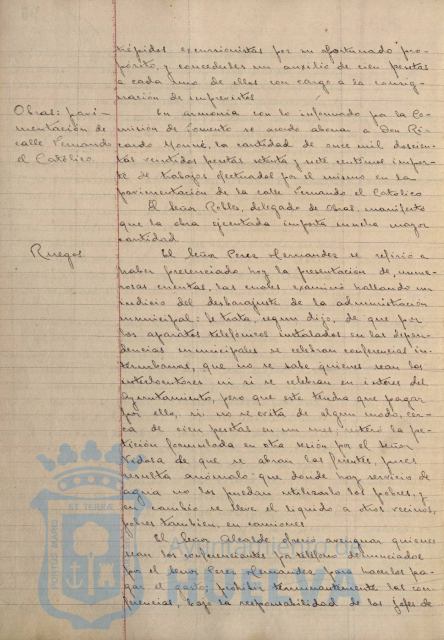 trépidos excursionistas por su afortunado pro-
pósito, y concederles un auxilio de cien pesetas
a cada uno de ellos con cargo a la consig-
nación de imprevistos
Obras: pavi-
mentación de
calle Fernando
el Católico.
En armonía con lo informado por la Co-
misión de Fomento se acordó abonar a Don Ri-
cardo la cantidad de once mil doscien-
tas veintidos pesetas setenta y siete centimos impor-
te de trabajos efectuados por el mismo en la
pavimentación de la calle Fernando el Catolico
El Señor Robles, delegado de Obras, manifestó
que la obra ejecutada importa mucha mayor
cantidad
Ruegos
El Señor Perez Hernandez se refirió a
haber presenciado hoy la presentación de nume-
rosas cuentas, las cuales examinó hallando un
indicio del desbarajuste de la administración
municipal: Se trata, segun dijo, de que por
los aparatos telefónicos instalados en las depen-
dencias municipales se celebran conferencias in-
terurbanas, que no se sabe quienes sean los
interlocutores ni si se celebran en interés del
Ayuntamiento, pero que este tendrá que pagar
por ello, si no se evita de algun modo, cer-
ca de cien pesetas en un mes. Reiteró la pe-
tición formulada en otra sesión por el Señor
Tejera de que se abran las fuentes, pues
resulta anómalo que donde hay servicio de
agua no los puedan utilizarlo los pobres, y
en cambio se lleve el liquido a otros vecinos,
pobres tambien, en camiones
El Señor Alcalde ofreció averiguar quienes
sean los conferenciantes por teléfono denunciados
por el Señor Perez Hernandez para hacerles pa-
gar el gasto; prohibir terminantemente las con-
ferencias, bajo la responsabilidad de los Jefes de